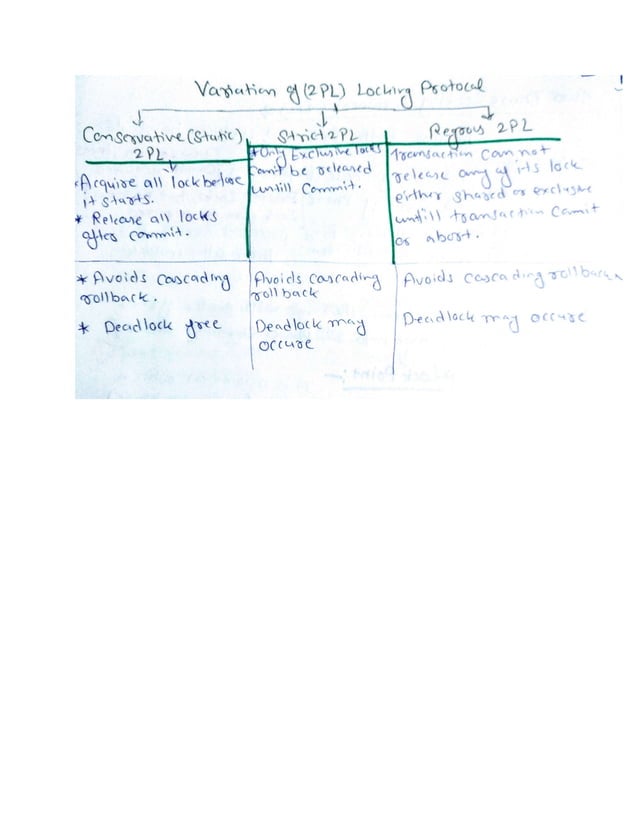 Variation of (2PL) Locking Protocol
Conservative (Static)
2PL
* Acquire all lock before
it starts.
* Release all locks
after commit.
* Avoids cascading
rollback.
* Deadlock free
Strict 2PL
* Only Exclusive locks
can't be released
untill Commit.
Avoids cascading
rollback
Deadlock may
occure
Regrous 2PL
Transaction can not
release any of its lock
either shared or exclusive
untill transaction Commit
or abort.
Avoids cascading rollback
Deadlock may occure